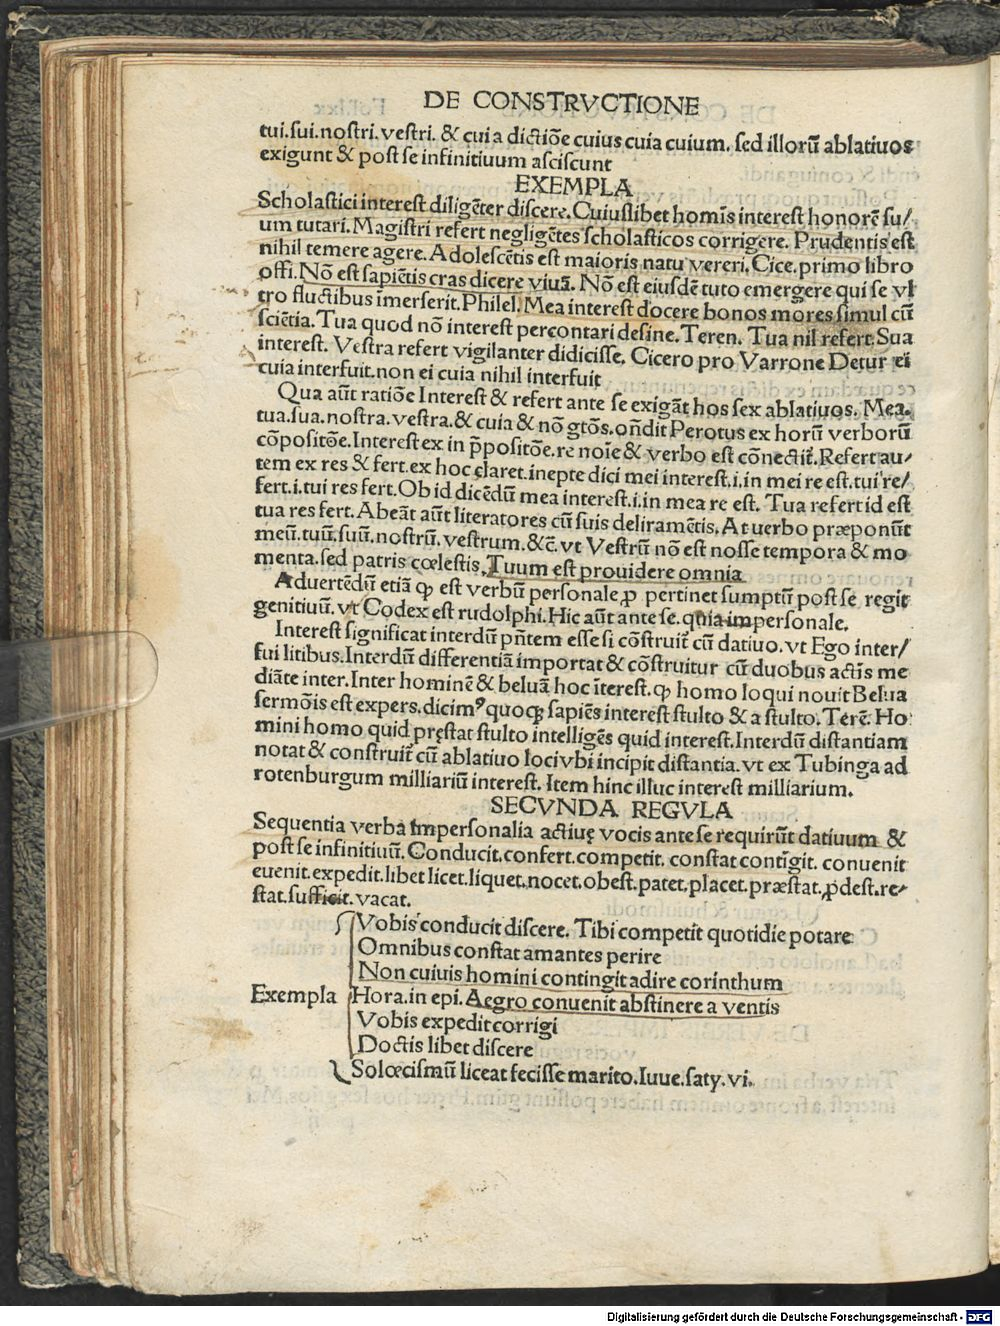 DE CONSTRVCTIONE
tui.sui.nostri.vestri. & cui a dictiõe cuius cuia cuium. sed illorũ ablatiuos
exigunt & post se infinitiuum asciscunt
EXEMPLA
Scholastici interest diligẽter discere. Cuiuslibet homĩs interest honorẽ su/
um tutari. Magistri refert negligẽtes scholasticos corrigere. Prudentis est
nihil temere agere. Adolescẽtis est maioris natu vereri. Cice. primo libro
offi. Nõ est sapiẽtis cras dicere viuã. Nõ est eiusdẽ tuto emergere qui se vl
tro fluctibus ĩmerserit. Philel. Mea interest docere bonos mores simul cũ
sciẽtia. Tua quod nõ interest percontari desine. Teren. Tua nil refert. Sua
interest. Vestra refert vigilanter didicisse. Cicero pro Varrone Detur ei
cuia interfuit. non ei cuia nihil interfuit
Qua aũt ratiõe Interest & refert ante se exigãt hos sex ablatiuos. Mea.
tua.sua.nostra.vestra.& cuia & nõ gtõs. oñdit Perotus ex horũ verborũ
cõpositõe. Interest ex in p̃positõe. re noĩe & verbo est cõnectit̃. Refert au/
tem ex res & fert. ex hoc claret. inepte dici mei interest.i. in mei re est. tui re/
fert.i. tui res fert. Ob id dicẽdũ mea interest.i. in mea re est. Tua refert id est
tua res fert. Abeãt aũt literatores cũ suis deliramẽtis. At uerbo præponũt
meũ.tuũ.suũ.nostrũ.vestrum.&c̃. vt Vestrũ nõ est nosse tempora & mo
menta. sed patris cœlestis. Tuum est prouidere omnia
Aduertẽdũ etiã ꝙ est verbũ personale ꝓ pertinet sumptũ post se regit
genitiuũ. vt Codex est rudolphi. Hic aũt ante se. quia impersonale.
Interest significat interdũ pñtem esse si cõstruit̃ cũ datiuo. vt Ego inter/
fui litibus. Interdũ differentiã importat & cõstruitur cũ duobus actĩs me
diãte inter. Inter hominẽ & beluã hoc ĩterest. ꝙ homo loqui nouit Belua
sermõis est expers. dicimꝰ quoqꝫ sapiẽs interest stulto & a stulto. Terẽ. Ho
mini homo quid pręstat stulto intelligẽs quid interest. Interdũ distantiam
notat & construit̃ cũ ablatiuo loci vbi incipit distantia. vt ex Tubinga ad
rotenburgum milliariũ interest. Item hinc illuc interest milliarium.
SECVNDA REGVLA
Sequentia verba impersonalia actiuę vocis ante se requirũt datiuum &
post se infinitiuũ. Conducit. confert. competit. constat contĩgit. conuenit
euenit. expedit. libet licet. liquet. nocet. obest. patet. placet. præstat. ꝓdest. re/
stat. sufficit. vacat.
Vobis conducit discere. Tibi competit quotidie potare
Omnibus constat amantes perire
Non cuiuis homini contingit adire corinthum
Exempla Hora. in epi. Aegro conuenit abstinere a ventis
Vobis expedit corrigi
Doctis libet discere
Solœcismũ liceat fecisse marito. Iuue. saty. vi.
Digitalisierung gefördert durch die Deutsche Forschungsgemeinschaft - DFG